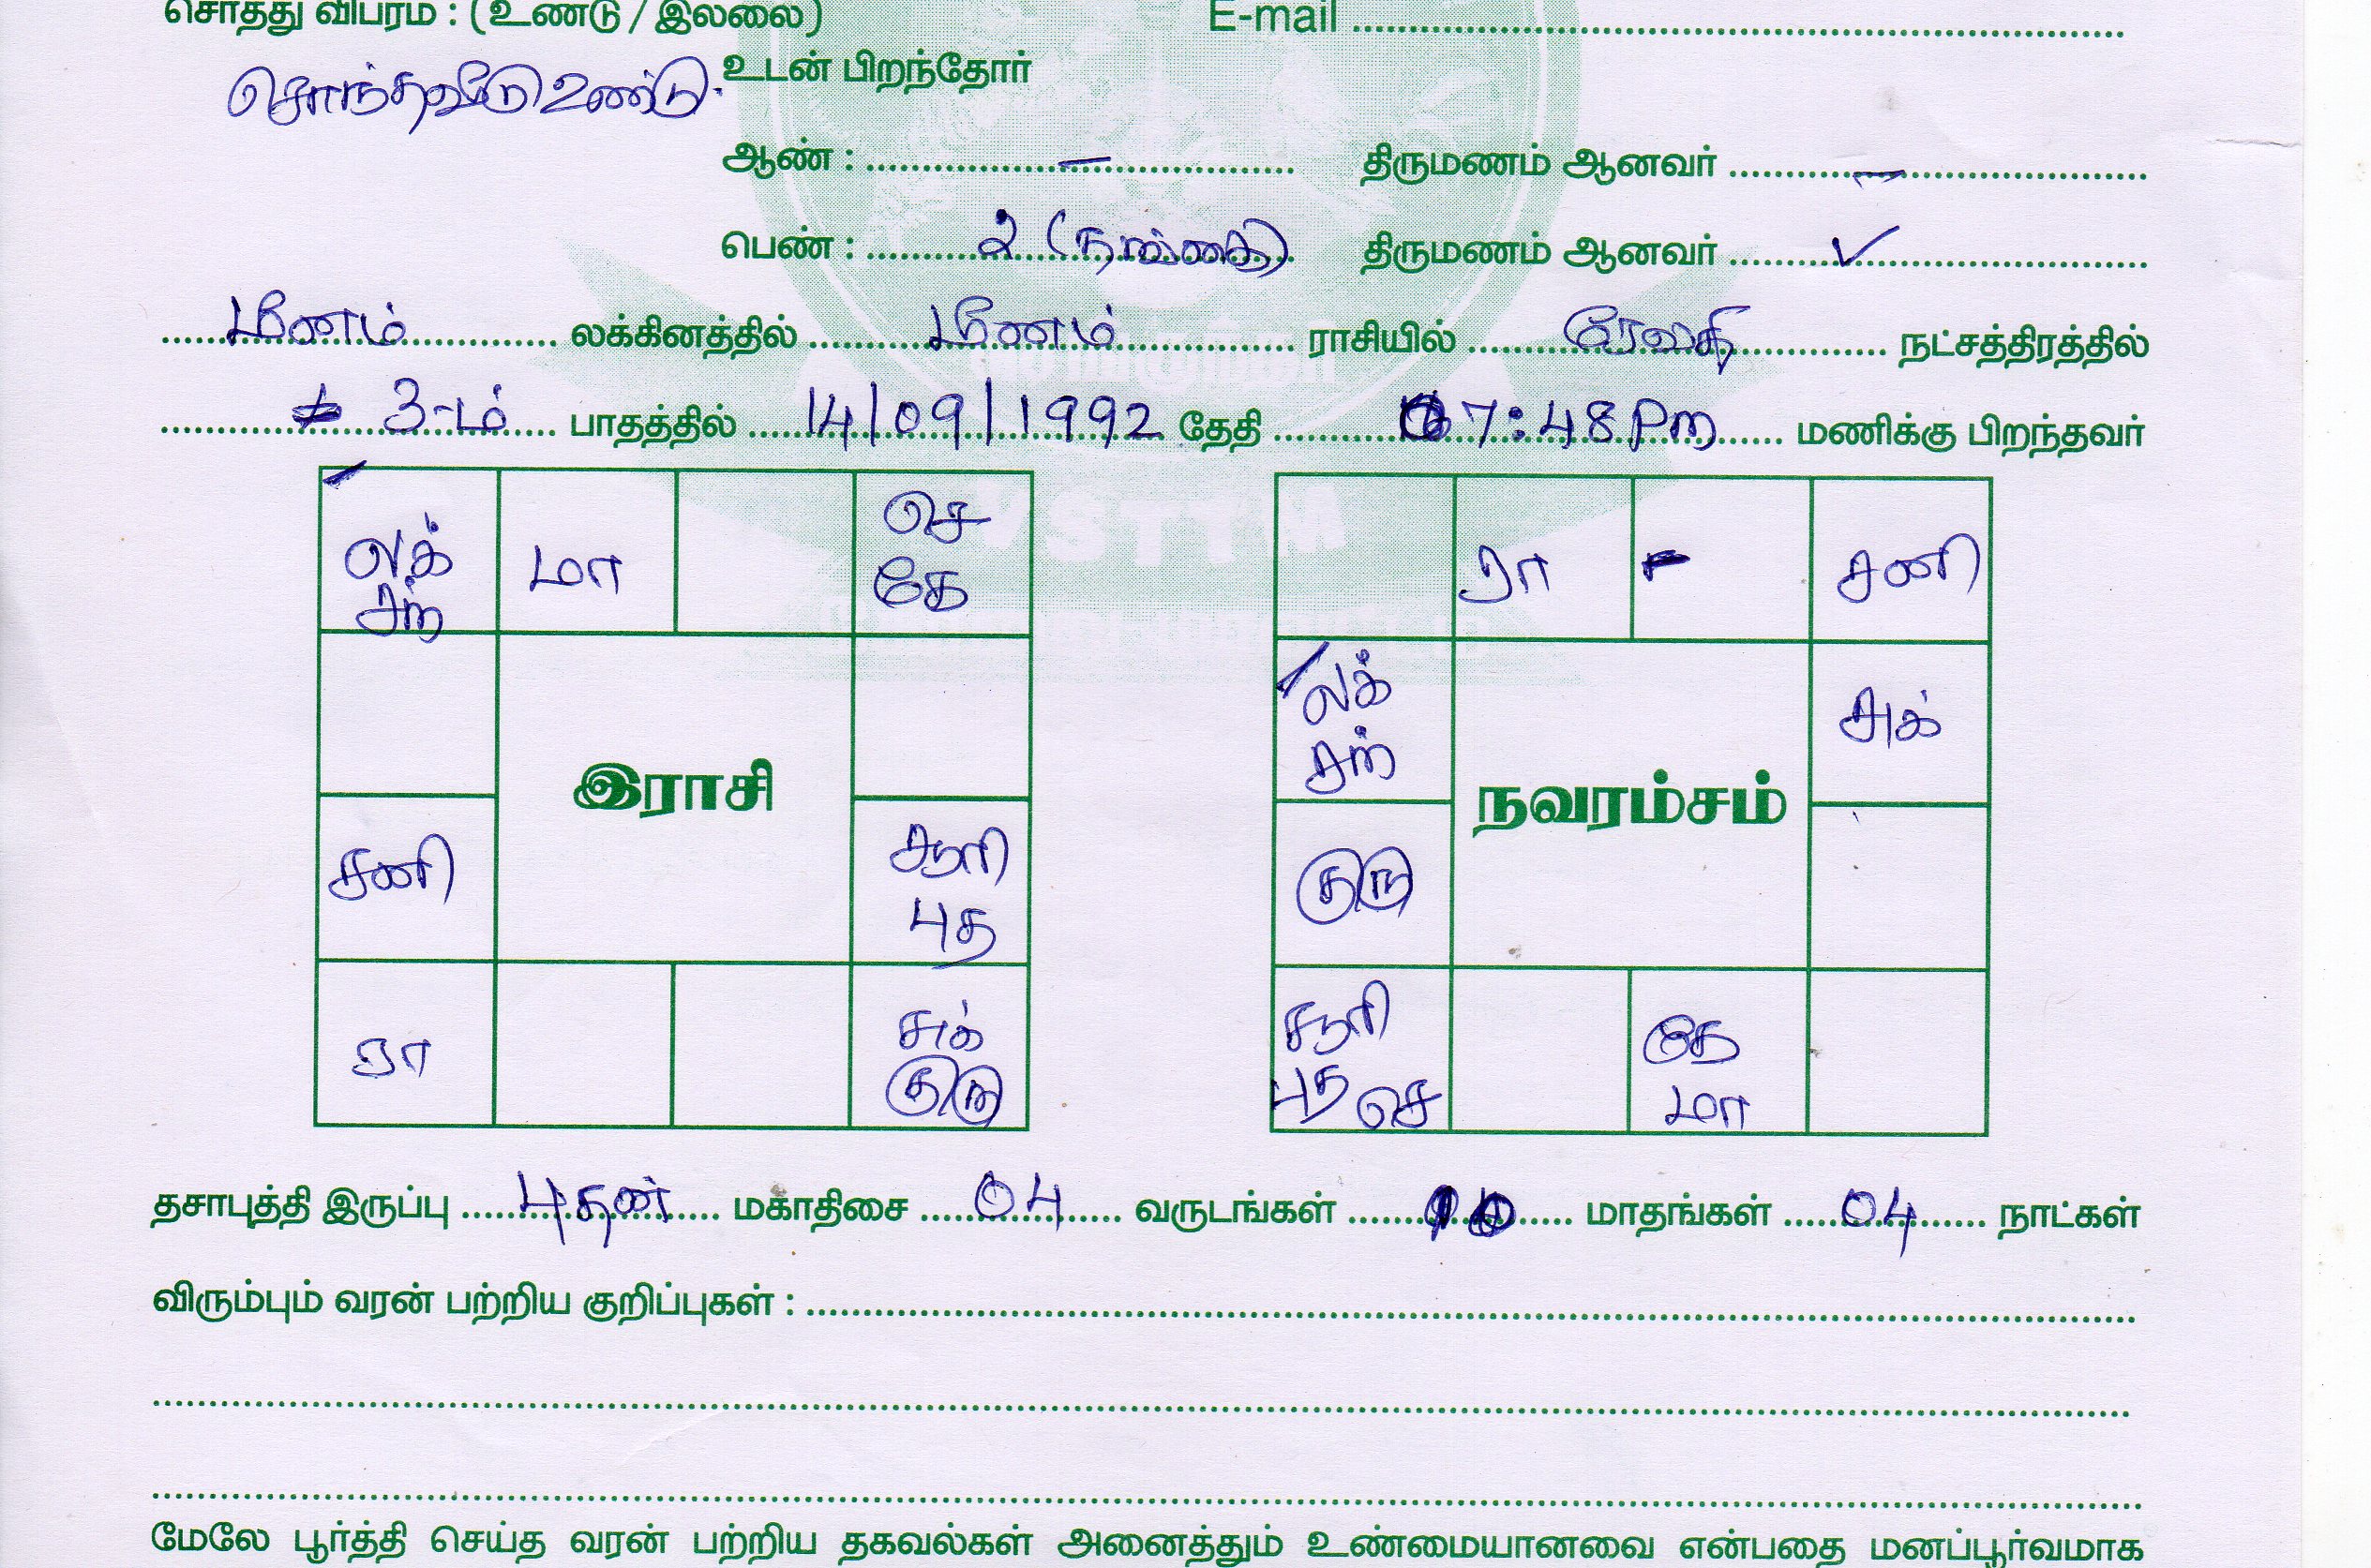 சொத்து விபரம் : (உண்டு / இல்லை) E-mail
சொந்தவீடு உண்டு. உடன் பிறந்தோர்
ஆண் : – திருமணம் ஆனவர் –
பெண் : 2 (தங்கை) திருமணம் ஆனவர் ✓
மீனம் லக்கினத்தில் மீனம் ராசியில் ரேவதி நட்சத்திரத்தில்
3-ம் பாதத்தில் 14/09/1992 தேதி 07:48 Pm மணிக்கு பிறந்தவர்
VSTTM
லக் மா செ ரா சனி
சந் கே
லக் சுக்
சந்
இராசி நவரம்சம்
சனி சூரி குரு
புத
ரா சுக் சூரி கே
குரு புத செ மா
தசாபுத்தி இருப்பு புதன் மகாதிசை 04 வருடங்கள் 10 மாதங்கள் 04 நாட்கள்
விரும்பும் வரன் பற்றிய குறிப்புகள் :
மேலே பூர்த்தி செய்த வரன் பற்றிய தகவல்கள் அனைத்தும் உண்மையானவை என்பதை மனப்பூர்வமாக